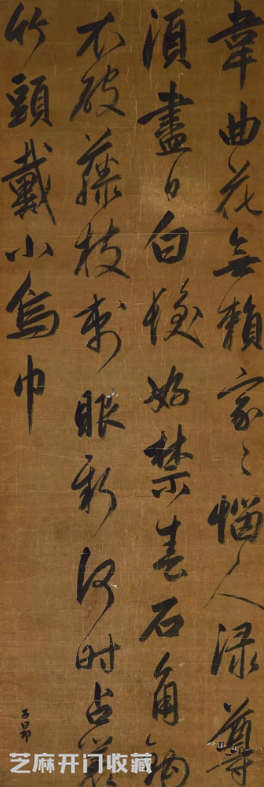 韋曲花無賴家〻惱人渌尊
須盡日白髮好禁春石角鈎
不破藤枝刺眼新何時占叢
竹頭戴小烏巾
子昂
芝麻开门收藏